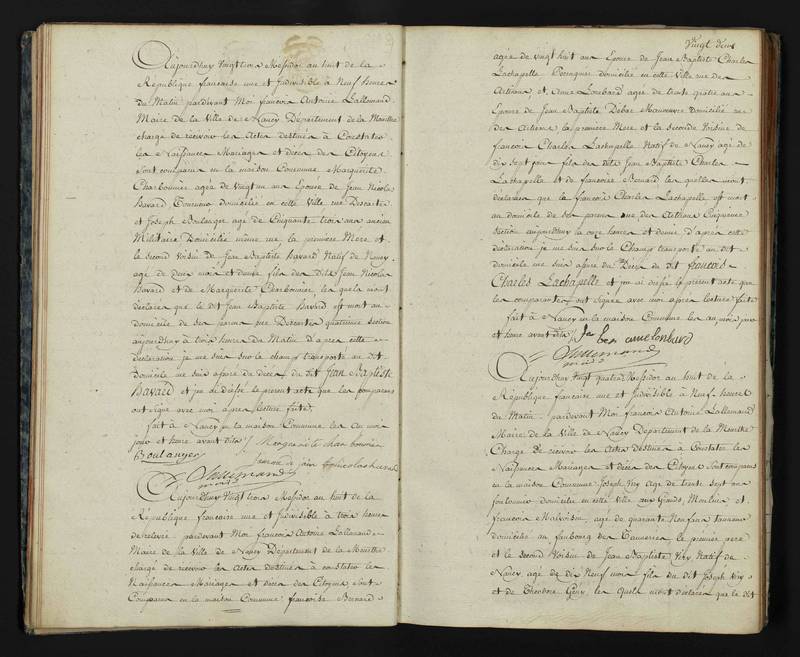 Aujourdhuy Vingt trois Messidor an huit de la
République francaise une et Indivisible à Neuf heures
du Matin pardevant Moi francois Antoine Lallemand
Maire de la Ville de Nancy Département de la Meurthe
chargé de recevoir les Actes destinés à Constater
les Naissances Mariages et décès des Citoyens
sont comparus en la maison Commune Marguerite
Charbonnier agée de Vingt un ans Epouse de Jean Nicolas
Bavard domiciliée en cette Ville rue Descartes
et Joseph Boulanger agé de Cinquante trois ans ancien
Militaire Domicilié même rue la première Mère et
le second Voisin de Jean Baptiste Bavard Natif de Nancy
agé de deux mois et demie fils des dits Jean Nicolas
Bavard et de Marguerite Charbonnier, les quels m'ont
déclaré que le dit Jean Baptiste Bavard est mort au
domicile de ses parens rue Descartes quatrieme section
aujourdhuy à trois heures du Matin d'après cette
déclaration je me suis sur le champ transporté au dit
Domicile me suis assuré du décès du dit Jean Baptiste
Bavard et j'en ai dressé le présent acte que les comparans
ont signé avec moi après lecture faite,
fait à Nancy en la maison Commune les an mois
jour et heure avant dits /. Margueritte charbonnier
Boulanger femme de jean
Lallemand
maire
Aujourdhuy Vingt trois Messidor an huit de la
République francaise une et Indivisible à trois heures
de relevée pardevant Moi francois Antoine Lallemand
Maire de la Ville de Nancy Département de la Meurthe
chargé de recevoir les Actes destinés à constater les
Naissances Mariages et décès des Citoyens sont
Comparus en la maison Commune francoise Bernard
Vingt deux
agée de vingt huit ans Epouse de Jean Baptiste Charles
Lachapelle domiciliée en cette Ville rue des
Artisans et Anne Lombard agée de trente quatre ans
Epouse de Jean Baptiste Debés Manœuvre domiciliée rue
des Artisans la première Mere et la seconde Voisine de
francois Charles Lachapelle Natif de Nancy agé de
dix sept jours fils des dits Jean Baptiste Charles
Lachapelle et de francoise Bernard les quelles m'ont
déclaré que le francois Charles Lachapelle est mort
au domicile de ses parens rue des Artisans Cinquieme
section aujourdhuy à onze heures et demie d'après cette
déclaration je me suis sur le Champ transporté au dit
domicile me suis assuré du Décès du dit francois
Charles Lachapelle et j'en ai dressé le présent acte que
les comparantes ont signé avec moi après lecture faite
fait à Nancy en la maison Commune les an mois jour
et heure avant dits /. anne lonbard
Lallemand
maire
Aujourdhuy Vingt quatre Messidor an huit de la
République francaise une et Indivisible à Neuf heures
du Matin pardevant Moi francois Antoine Lallemand
Maire de la Ville de Nancy Département de la Meurthe
Chargé de recevoir les Actes Destinés à Constater les
Naissances Mariages et décès des Citoyens sont comparus
en la maison Commune Joseph agé de trente sept ans
domicilié en cette Ville aux Grands Moulins et
francois agé de quarante Neuf ans tanneur
domicilié au faubourg des Tanneries le premier père
et le second Voisin de Jean Baptiste Natif de
Nancy agé de dix Neuf mois fils du dit Joseph
et de Theodore les quels m'ont déclaré que le dit